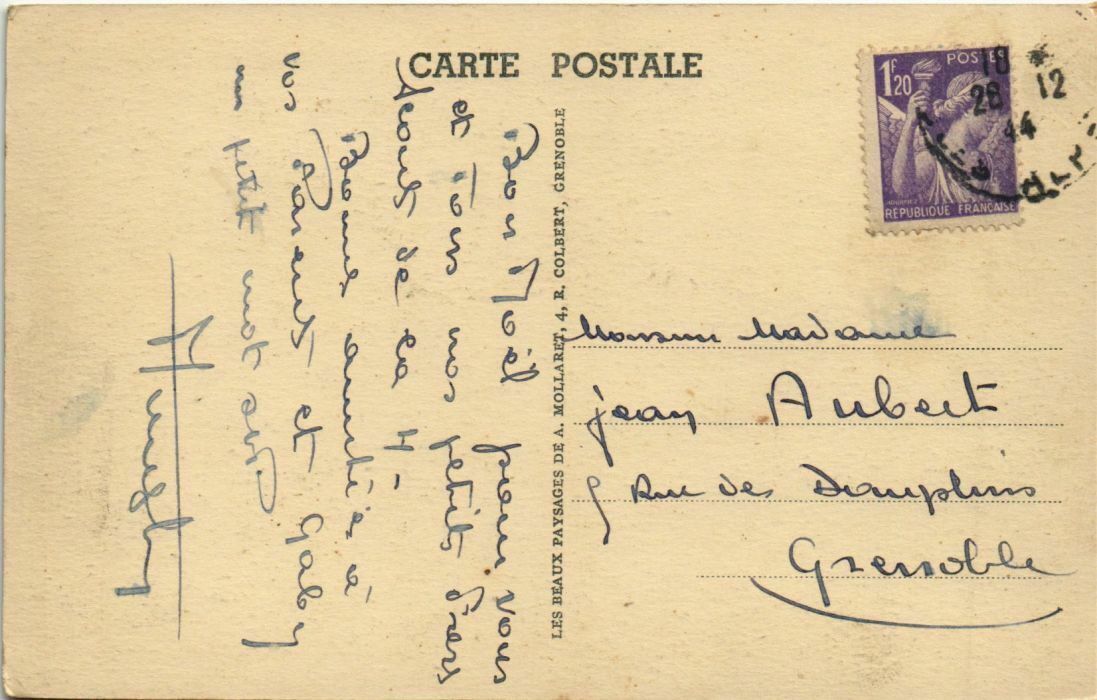 CARTE POSTALE
POSTES
1F20
RÉPUBLIQUE FRANÇAISE
18 *
28 12
44
LES BEAUX PAYSAGES DE A. MOLLARET, 4, R. COLBERT, GRENOBLE
Bon Noël pour vous
et tous nos petits
de la
Bonnes amitiés à
vos Parents et Gaby
un petit mot svp
Monsieur Madame
jean Aubert
5 Rue des Dauphins
Grenoble